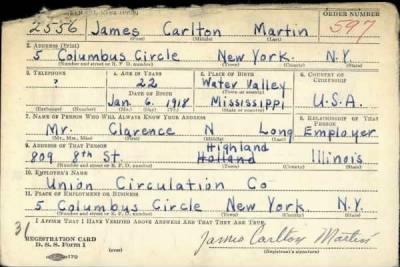 ORDER NUMBER
2556 James Carlton Martin 597
(First) (Middle) (Last)
2. ADDRESS (Print)
5 Columbus Circle New York N.Y.
(Number and street or R. F. D. number) (Town) (County) (State)
3. TELEPHONE 4. AGE IN YEARS 5. PLACE OF BIRTH 6. COUNTRY OF CITIZENSHIP
? 22 Water Valley
DATE OF BIRTH (Town or county)
Jan 6, 1918 Mississippi U.S.A.
(Exchange) (Number) (Mo.) (Day) (Yr.) (State or country)
7. NAME OF PERSON WHO WILL ALWAYS KNOW YOUR ADDRESS 8. RELATIONSHIP OF THAT PERSON
Mr. Clarence N Long Employer
(Mr., Mrs., Miss) (First) (Middle) (Last)
9. ADDRESS OF THAT PERSON Highland
809 8th St. Holland Illinois
(Number and street or R. F. D. number) (Town) (County) (State)
10. EMPLOYER'S NAME
Union Circulation Co
11. PLACE OF EMPLOYMENT OR BUSINESS
5 Columbus Circle New York N.Y.
(Number and street or R. F. D. number) (Town) (County) (State)
I AFFIRM THAT I HAVE VERIFIED ABOVE ANSWERS AND THAT THEY ARE TRUE.
REGISTRATION CARD
D. S. S. Form 1 (over) James Carlton Martin
(Registrant's signature)